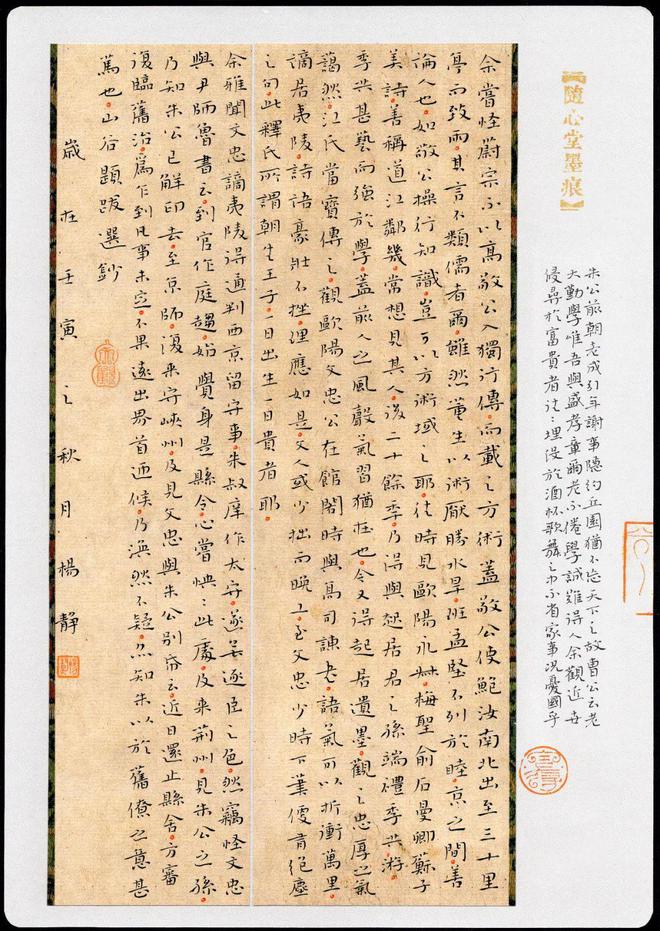 【隨心堂墨痕】
朱公前朝老成引年謝事隱約丘園猶不忘天下之故曹公云老
大勤學唯吾與盛孝章晌老不倦學誠難得人余觀近世
侵尋於富貴者往往埋沒於酒杯歌舞之中不省家事況憂國乎
余嘗怪蔚宗不以高敬公入獨行傳而載之方術蓋敬公使鮑汝南北出至三十里
亭而致雨其言不類儒者爾雖然董生以術厭勝水旱班孟堅不列於眭京之間善
論人也如敬公操行知識豈可以方術域之耶往時見歐陽永叔梅聖俞石曼卿蘇子
美詩善稱道江鄰幾常想見其人後二十餘季乃得與起居君之孫端禮季共游
季共甚藝而強於學蓋前人之風聲氣習猶在也今又得起居遺墨觀之忠厚之氣
藹然江氏當寶傳之觀歐陽文忠公在館閣時與高司諫書語氣可以折衝萬里
謫居夷陵詩語豪壯不挫理應如是文人或少拙而晚工至文忠少時下筆便有絕塵
之句此釋氏所謂朝生王子一日出生一日貴者耶
余雅聞文忠謫夷陵得通判西京留守事朱叔庠作太守遂無逐臣之色然竊怪文忠
與尹師魯書云到官作庭趨始覺身是縣令心嘗怏怏此處及來荊州見朱公之孫
乃知朱公已解印去至京師復來守峽州及見文忠與朱公別紙云近日還止縣舍方審
復臨舊治爲乍到凡事未定不果遠出界首迎候乃渙然不疑知朱以於舊僚之意甚
篤也山谷題跋選鈔
歲在壬寅之秋月楊靜